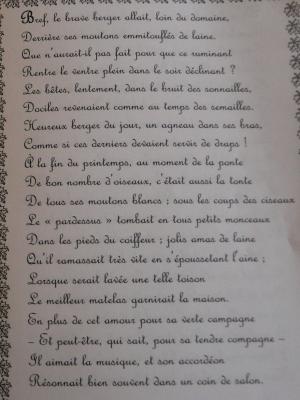 Bref, le brave berger allait, loin du domaine,
Derrière ses moutons emmitouflés de laine.
Que n'aurait-il pas fait pour que ce ruminant
Rentre le ventre plein dans le soir déclinant ?
Les bêtes, lentement, dans le bruit des sonnailles,
Dociles revenaient comme au temps des semailles.
Heureux berger du jour, un agneau dans ses bras,
Comme si ces derniers devaient servir de draps !
A la fin du printemps, au moment de la ponte
De bon nombre d'oiseaux, c'était aussi la tonte
De tous ses moutons blancs ; sous les coups des ciseaux
Le « pardessus » tombait en tous petits monceaux
Dans les pieds du coiffeur ; jolis amas de laine
Qu'il ramassait très vite en s'époussetant l'aine ;
Lorsque serait lavée une telle toison
Le meilleur matelas garnirait la maison.
En plus de cet amour pour sa verte campagne
– Et peut-être, qui sait, pour sa tendre compagne –
Il aimait la musique, et son accordéon
Résonnait bien souvent dans un coin de salon.